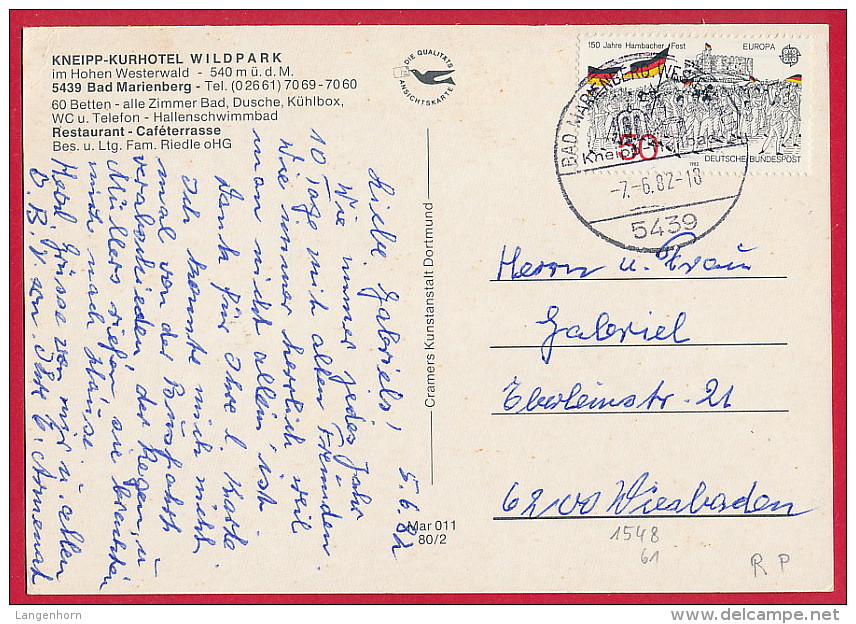 KNEIPP-KURHOTEL WILDPARK
im Hohen Westerwald - 540 m ü. d. M.
5439 Bad Marienberg - Tel. (02661) 7069-7060
60 Betten - alle Zimmer Bad, Dusche, Kühlbox,
WC u. Telefon - Hallenschwimmbad
Restaurant - Caféterrasse
Bes. u. Ltg. Fam. Riedle oHG
DIE QUALITÄTS
ANSICHTSKARTE
150 Jahre Hambacher Fest
EUROPA
50
1982
DEUTSCHE BUNDESPOST
BAD MARIENBERG, WESTERW
Kneipp-Heilbad
-7.-6.82-18
5439
5.6.82
Liebe Gabriels!
Wie immer jedes Jahr
10 Tage mit alten Freunden.
Wie immer herrlich weil
man nicht allein ist.
Dank für Ihre l. Karte
Ich konnte mich nicht
mal von der Busfahrt
verabschieden der Regen, u.
Müllers riefen sie brachten
mich nach Hause.
Herzl. Grüsse von mir u. allen
Ihre
Cramers Kunstanstalt Dortmund
Mar 011
80/2
Herrn u. Frau
Gabriel
Eberleinstr. 21
6200 Wiesbaden
1548
61
R P
Langenhorn
delcampe.net